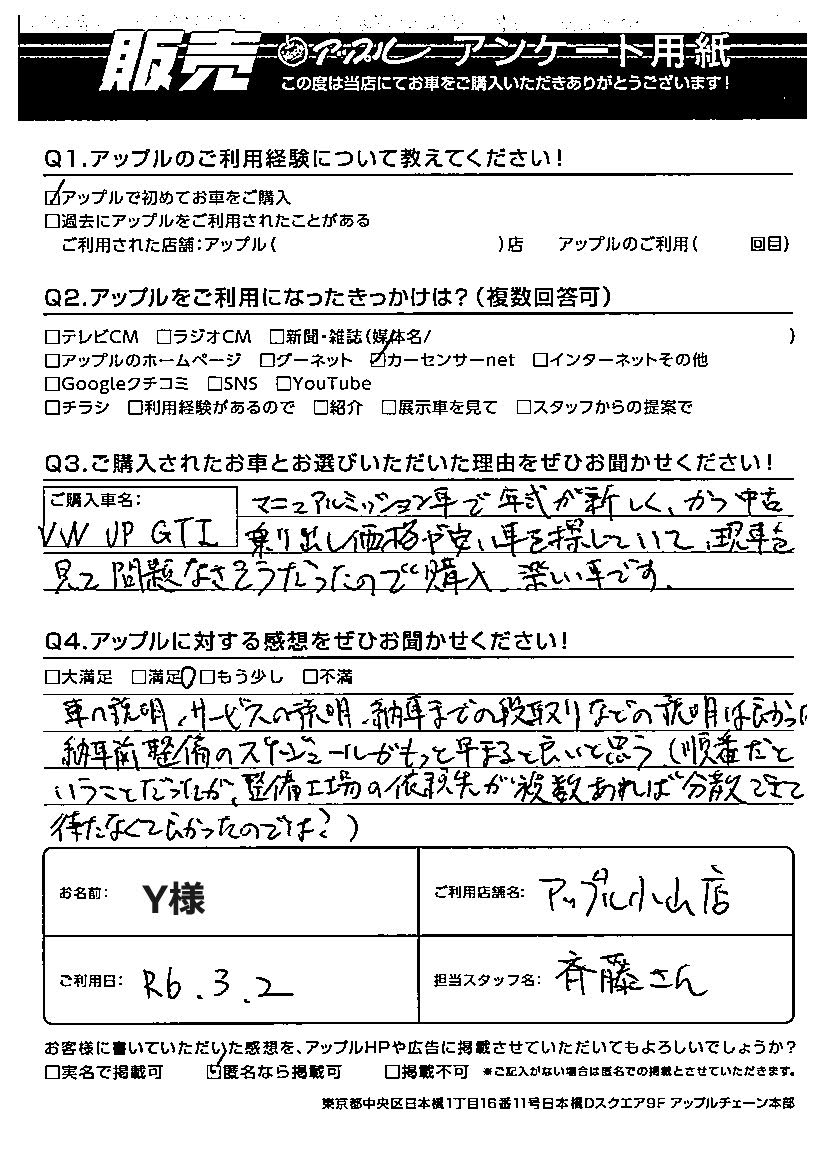 販売 アップル アンケート用紙
この度は当店にてお車をご購入いただきありがとうございます!
Q1.アップルのご利用経験について教えてください!
☑アップルで初めてお車をご購入
□過去にアップルをご利用されたことがある
ご利用された店舗:アップル( )店 アップルのご利用( 回目)
Q2.アップルをご利用になったきっかけは?(複数回答可)
□テレビCM □ラジオCM □新聞・雑誌(媒体名/ )
□アップルのホームページ □グーネット ☑カーセンサーnet □インターネットその他
□Googleクチコミ □SNS □YouTube
□チラシ □利用経験があるので □紹介 □展示車を見て □スタッフからの提案で
Q3.ご購入されたお車とお選びいただいた理由をぜひお聞かせください!
ご購入車名: マニュアルミッション車で年式が新しく、かつ中古
VW UP GTI 乗り出し価格が安い車を探していて、現車を
見て問題なさそうだったので購入。楽しい車です。
Q4.アップルに対する感想をぜひお聞かせください!
□大満足 □満足 □もう少し □不満
車の説明、サービスの説明、納車までの段取りなどの説明は良かっ
納車前整備のスケジュールがもっと早まると良いと思う(順番だと
いうことだったが、整備工場の依頼先が複数あれば分散できて
待たなくて良かったのでは?)
お名前: Y様 ご利用店舗名: アップル小山店
ご利用日: R6.3.2 担当スタッフ名: 斉藤さん
お客様に書いていただいた感想を、アップルHPや広告に掲載させていただいてもよろしいでしょうか?
□実名で掲載可 ☑匿名なら掲載可 □掲載不可 *ご記入がない場合は匿名での掲載とさせていただきます。
東京都中央区日本橋1丁目16番11号日本橋Dスクエア9F アップルチェーン本部